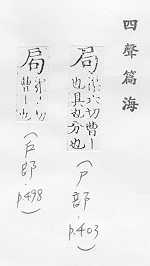 四聲篇海
局 渠六切曹丨
也具也分也
(尸部
p.403)
局
切
曹丨也
(戶部
p.498)